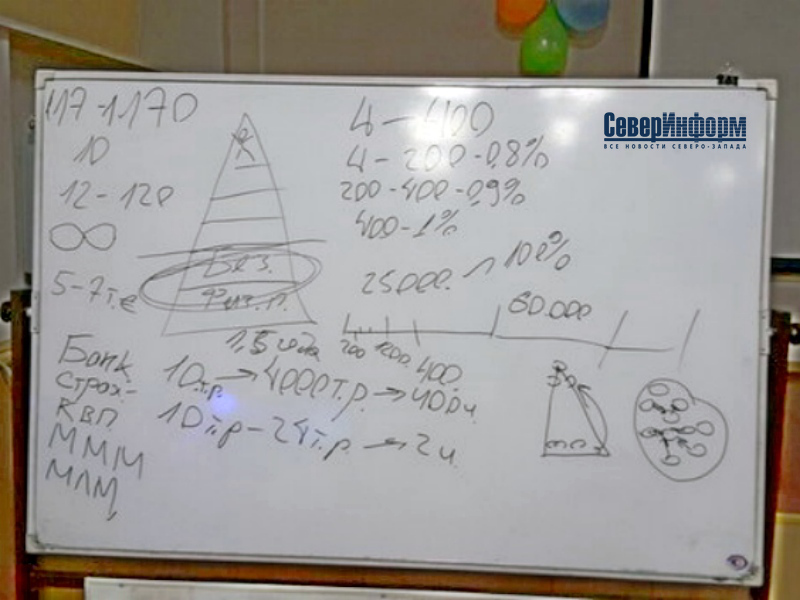 117-1170
10
12-120
∞
5-7 т.е
Банк
Страх-
КВП
МММ
МЛМ
Без.
Физ. п.
1,5 года
4-400
4-200-0,8%
200-400-0,9%
400-1%
25000.
100%
60.000
200
1200
400
10т.р. → 4000т.р. → 400ч
10т.р - 24т.р. → 2ч.
СеверИнформ
ВСЕ НОВОСТИ СЕВЕРО-ЗАПАДА